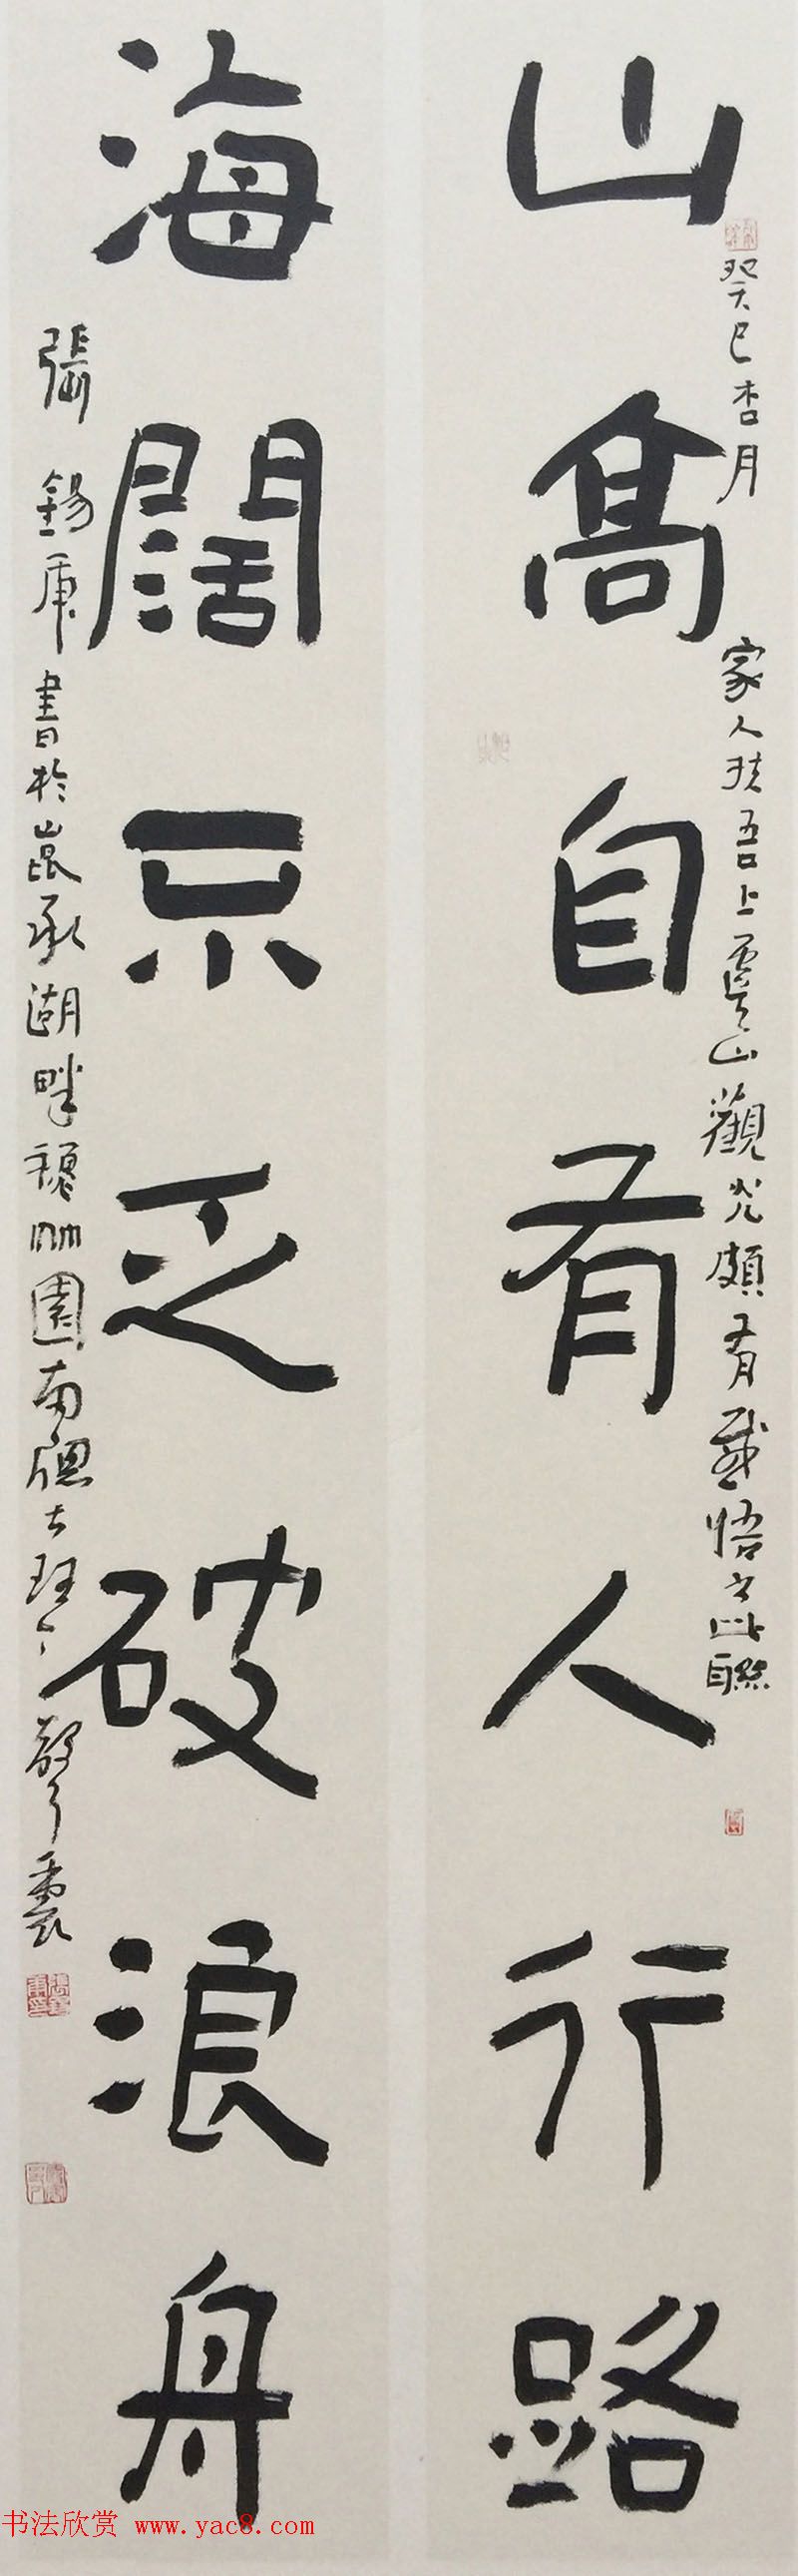 山高自有人行路
癸巳杏月 家人扶吾上虞山觀光頗有感悟之此聯
海闊不乏破浪舟
張錫庚書於崑承湖畔 園南窗
书法欣赏 www.yac8.com